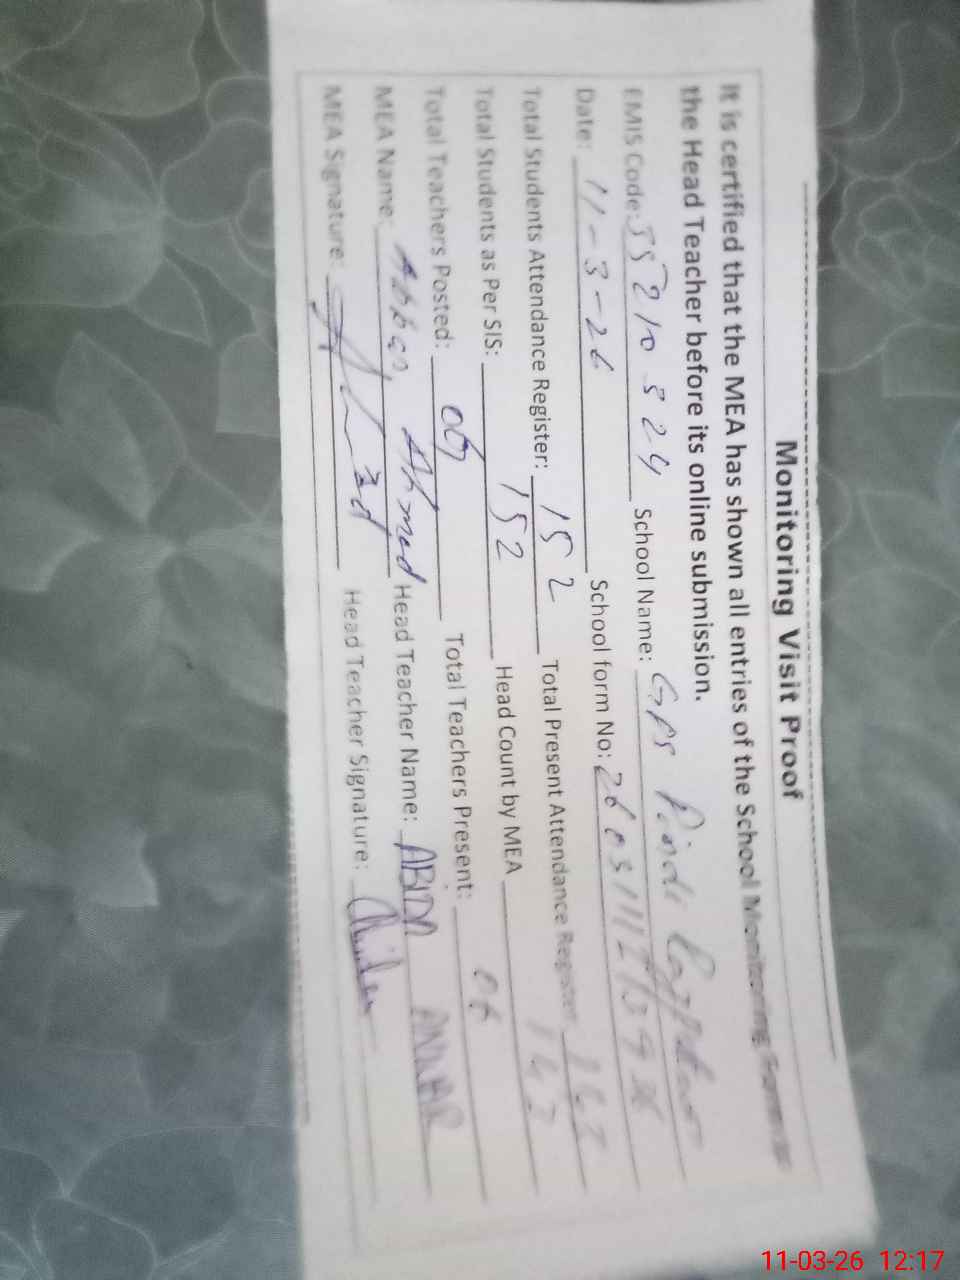 Monitoring Visit Proof
It is certified that the MEA has shown all entries of the School Monitoring Form to
the Head Teacher before its online submission.
EMIS Code: 35210324 School Name: GPS
Date: 11-3-26 School form No:
Total Students Attendance Register: 152 Total Present Attendance Register
Total Students as Per SIS: 152 Head Count by MEA
Total Teachers Posted: Total Teachers Present: 06
MEA Name: Abbas Ahmad Head Teacher Name: ABIDA ANWAR
MEA Signature: Head Teacher Signature:
11-03-26 12:17